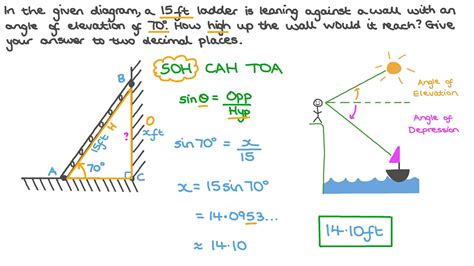 In the given diagram, a 15ft ladder is leaning against a wall with an
angle of elevation of 70°. How high up the wall would it reach? Give
your answer to two decimal places.
SOH CAH TOA
sinθ = Opp
Hyp
B
15ft H
O
x ft
?
A 70° C
sin70° = x
15
x = 15sin70°
= 14.0953...
≈ 14.10
Angle of
Elevation
Angle of
Depression
14.10ft